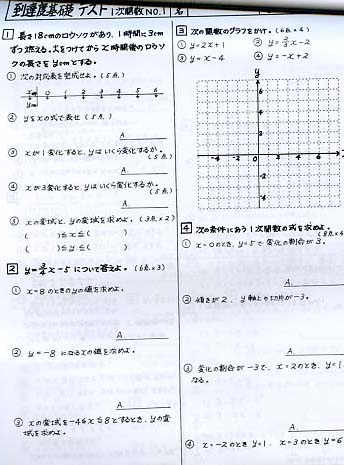 到達度基礎テスト 1次関数 NO.1 名
1 長さ18cmのロウソクがあり、1時間に3cm
ずつ燃える。火をつけてからx時間後のロウソ
クの長さをycmとする。
① 次の対応表を完成せよ。(5点)
x時 0 1 2 3 4 5 6
ycm
② yをxの式で表せ (5点)
A.
③ xが1変化すると、yはいくら変化するか。
(5点)
A.
④ xが3変化すると、yはいくら変化するか。
(5点)
A.
⑤ xの変域と、yの変域を求めよ。(3点×2)
( )≦x≦( )
( )≦y≦( )
2 y=x-5 について答えよ。(6点×3)
① x=8のときのyの値を求めよ。
A.
② y=-8 になるxの値を求めよ。
A.
③ xの変域を-4≦x≦8とするとき、yの変
域を求めよ。
3 次の関数のグラフをかけ。(6点×4)
① y=2x+1 ② y=x-2
③ y=x-4 ④ y=-x+2
y
6
4
2
-4 -2 0 2 4 6
-2
-4
4 次の条件にあう1次関数の式を求めよ。
(8点
① x=0のとき、y=5で変化の割合が3。
A.
② 傾きが2、y軸上の切片が-3。
A.
③ 変化の割合が-3で、x=2のとき y=1
なる。
A.
④ x=-2のとき y=1、x=3のとき y=6